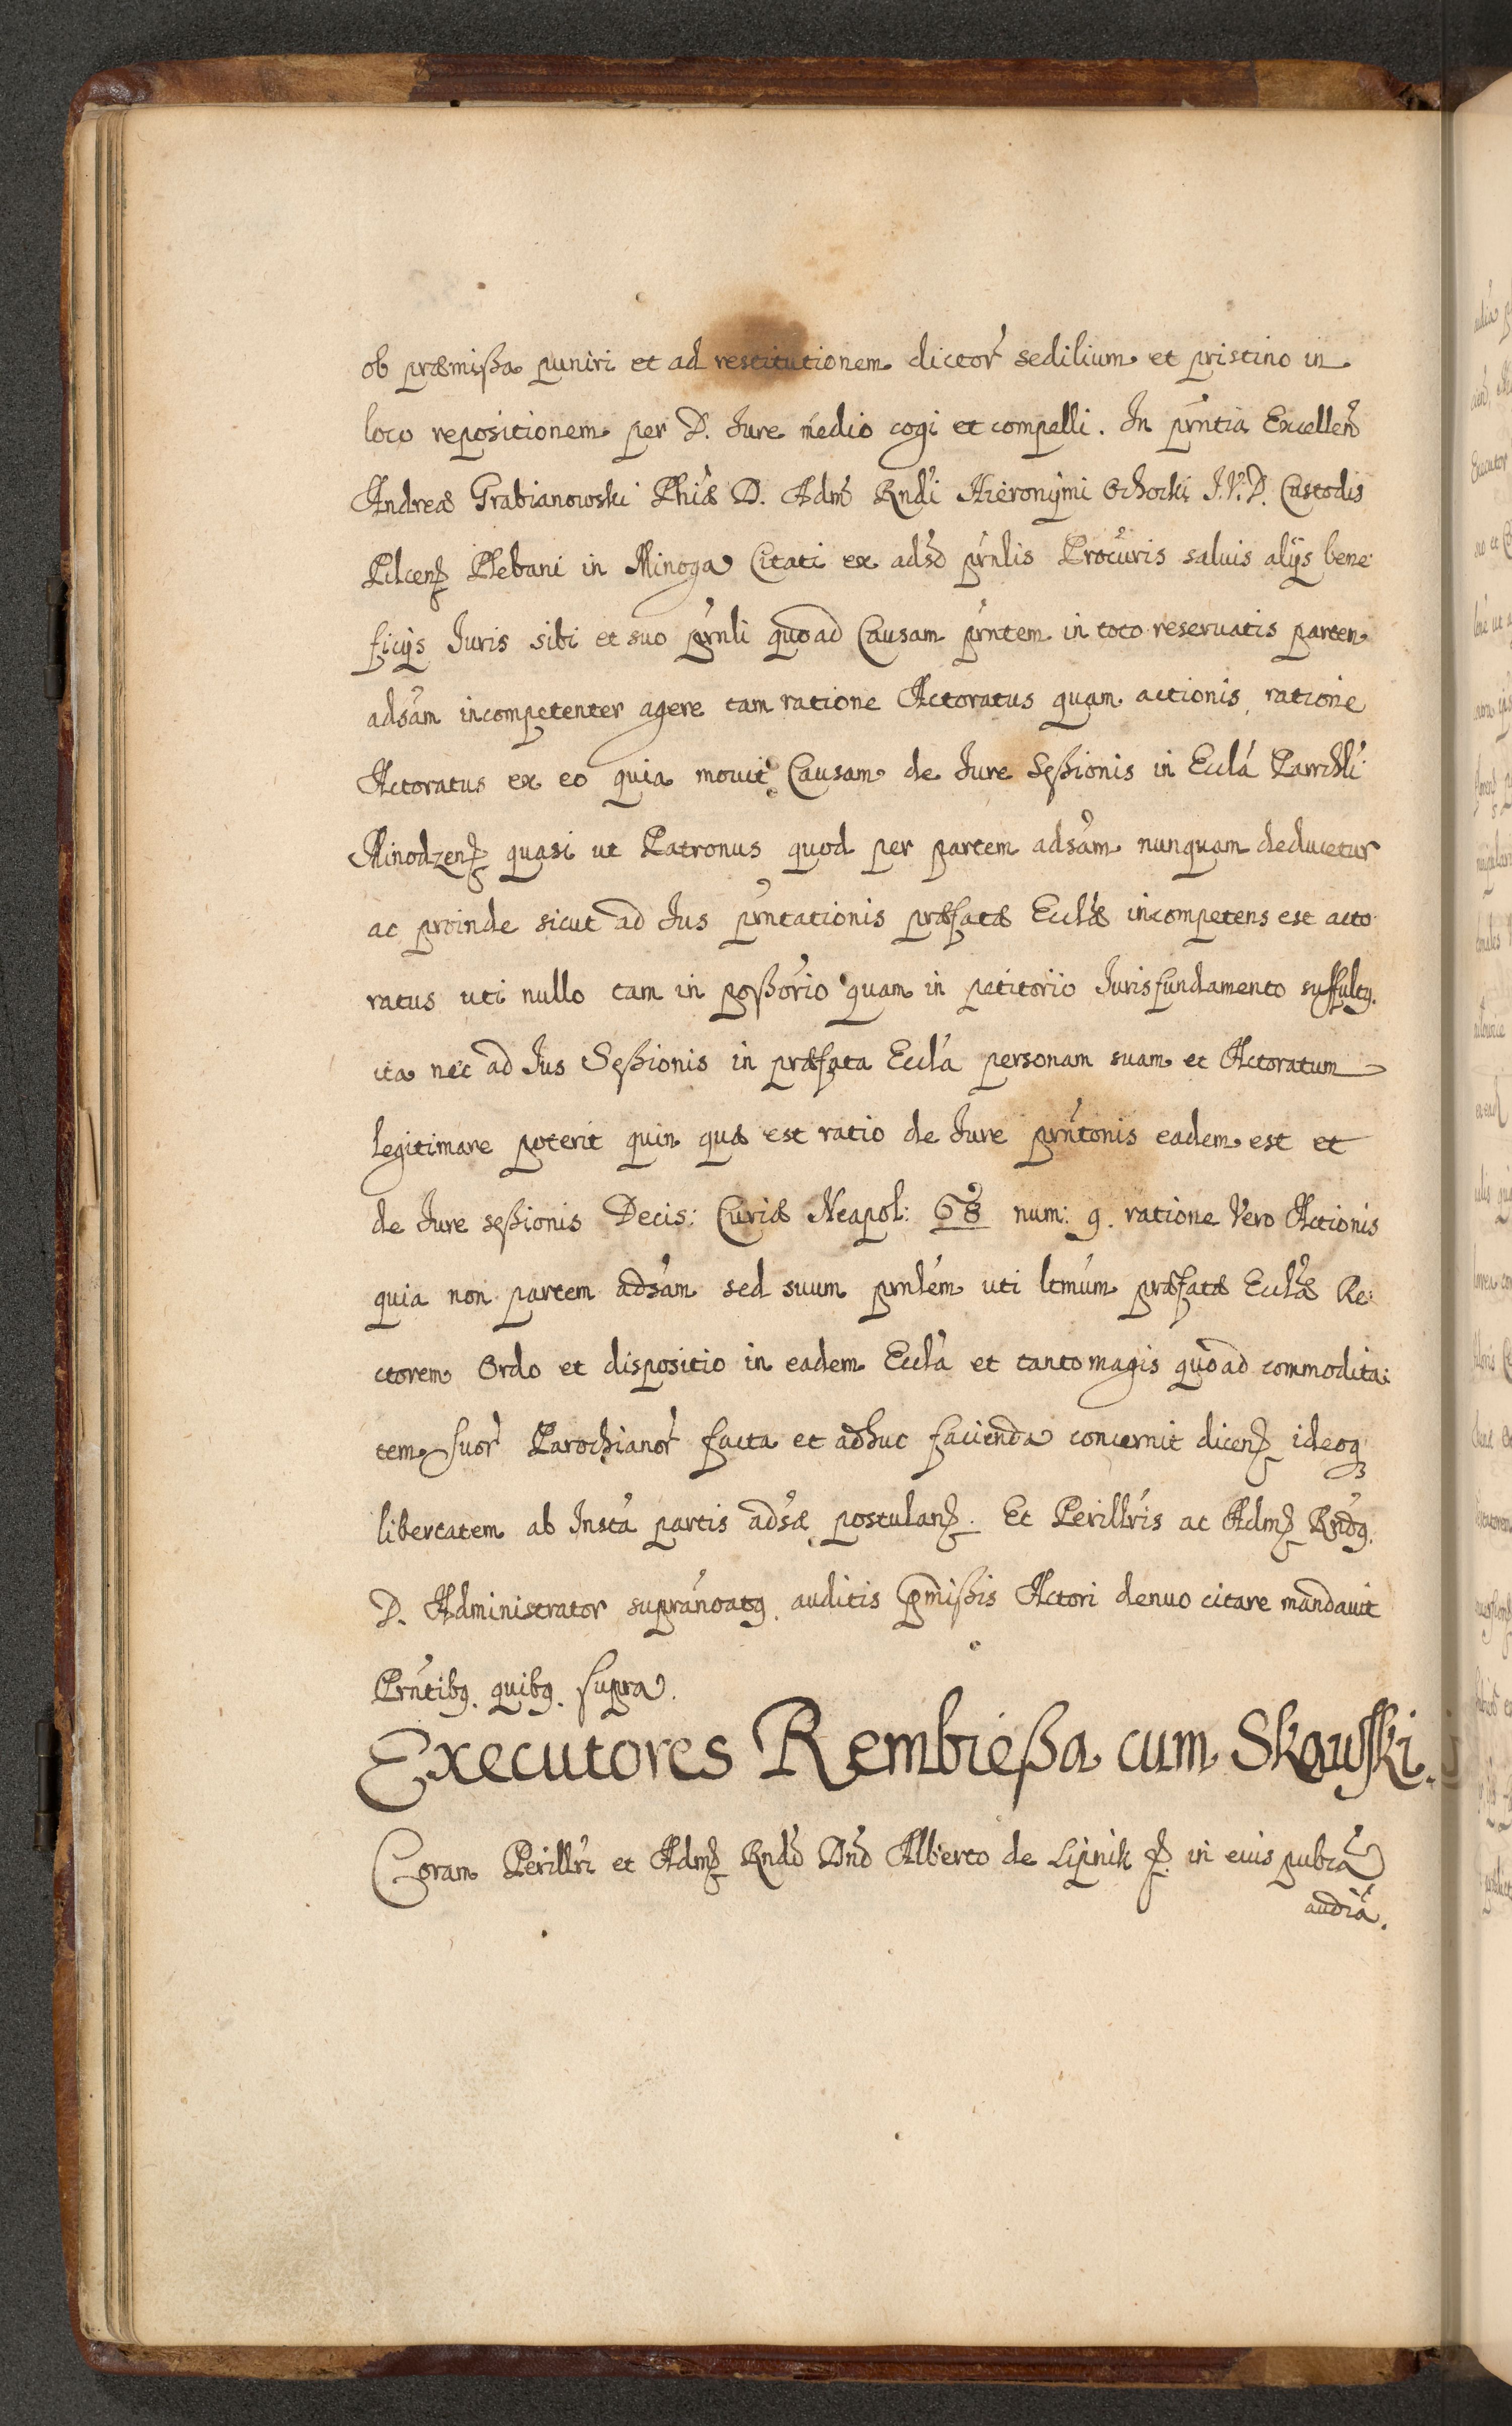 ob præmißa puniri et ad restitutionem dictor sedilium et pristino in
loco repositionem per D. Jure medio cogi et compelli. In prntia Excellen
Andreæ Grabianowski Phiæ D. Adm Rndi Hieronymi Ochocki J.V.D. Custodis
Pilcen Plebani in Minoga Citati ex adso prnlis Procuris saluis alijs bene
ficijs Juris sibi et suo prnli quo ad Causam prntem in toto reseruatis partem
adsam incompetenter agere tam ratione Actoratus quam actionis, ratione
Actoratus ex eo quia mouit Causam de Jure Seßionis in Eccla Parrchli
Minodzen quasi ut Patronus quod per partem adsam nunquam deducetur
ac proinde sicut ad Jus prntationis præfatæ Ecclæ incompetens est acto
ratus uti nullo tam in poßorio quam in petitorio Juris fundamento suffultq.
ita nec ad Jus Seßionis in præfata Eccla personam suam et Actoratum
legitimare poterit quin quæ est ratio de Jure prntonis eadem est et
de Jure seßionis Decis: Curiæ Neapol: 68 num: 9. ratione Vero Actionis
quia non partem adsam sed suum prnlem uti ltmum præfatæ Ecclæ Re:
ctorem Ordo et dispositio in eadem Eccla et tanto magis quo ad commodita:
tem suor Parochianor facta et adhuc facienda concernit dicen ideoq
libertatem ab Insta partis adsæ postulan. Et Perillris ac Adm Rndq.
D. Administrator supranoatq. auditis pmißis Actori denuo citare mandauit
Prntibq. quibq. supra.
Executores Rembießa cum Skawski.
Coram Perillri et Adm Rndo Dno Alberto de Lipnik p. in eius publca
audia.